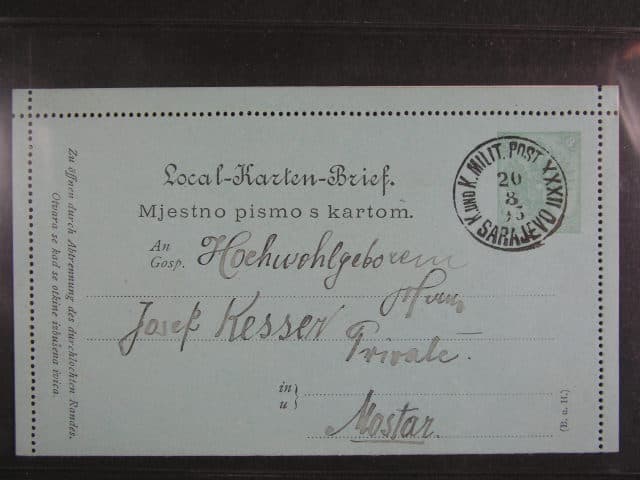 Local-Karten-Brief.
Mjestno pismo s kartom.
K. UND K. MILIT. POST XXXII
20
3
95
SARAJEVO
An
Gosp.
Hochwohlgeborem
Herrn
Josef Kesser
Private
in
u
Mostar.
(B. u. H.)
Zu öffnen durch Abtrennung des durchlochten Randes.
Otvara se kad se otkine izbušena ivica.